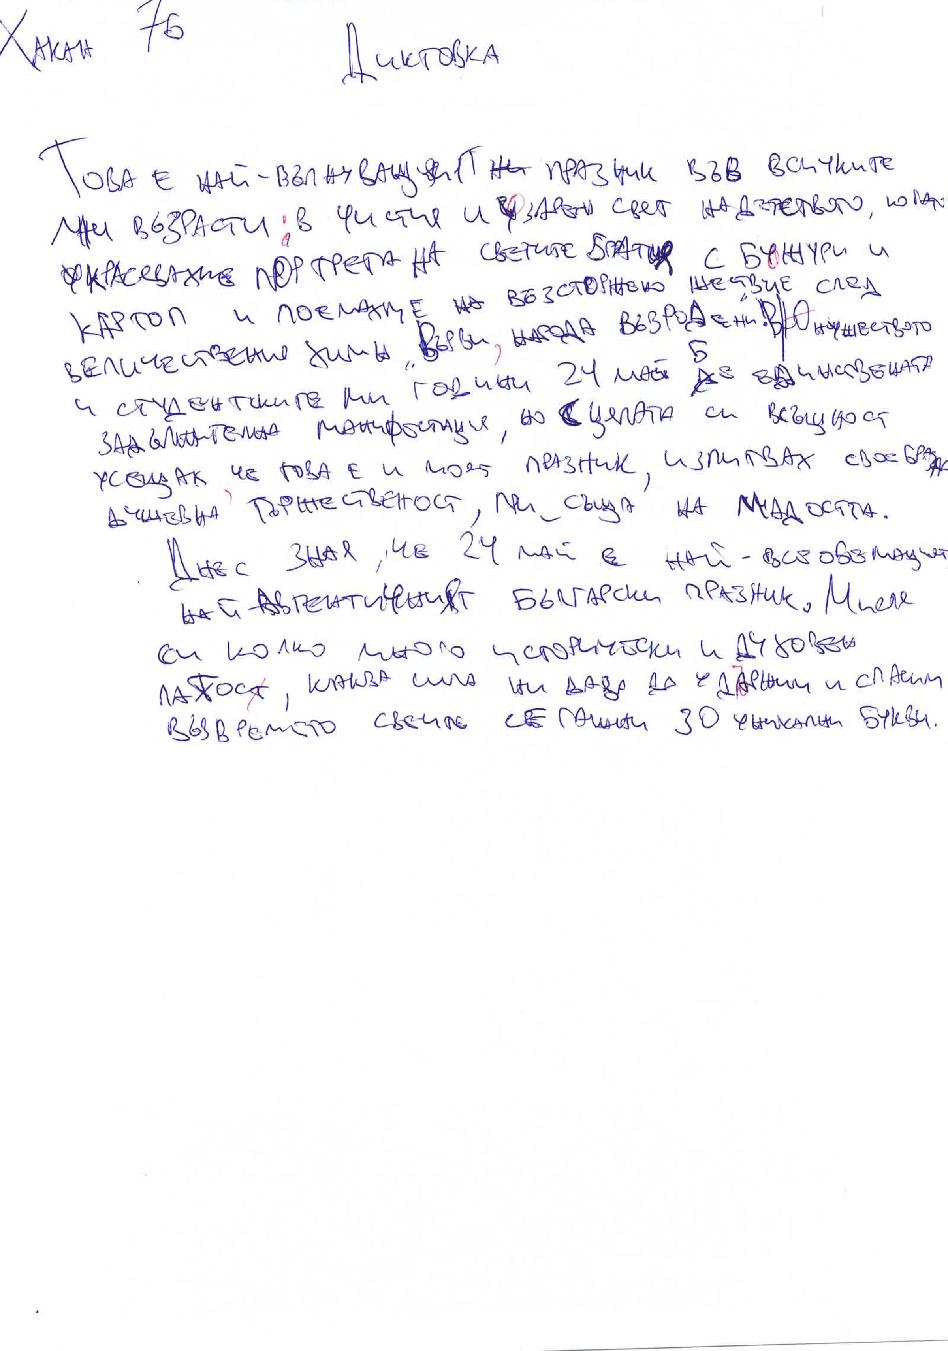 Хакан 7б
Диктовка
Това е най-вълнуващият празник във всичките
ми възрасти: в чистия и озарен свет на детството, когато
украсевахме портрета на светите братя с бужури и
картоп и поемахме на възсторнено шествие след
величествения химн „Върви, народа възродени". В юнушеството
и студентските ми години 24 май бе единствената
задължителна манифестация, но с цената си всъщност
усещах че това е и моят празник, изпитвах своебразна
душевна тържественост, присъща на младостта.
Днес зная, че 24 май е най-всеобемащият
най-автентичният български празник. Мисля
си колко много исторически и духовен
патост, каква сила ни дава да удържим и спасим
възвремето свеите сегашни 30 уникални букви.